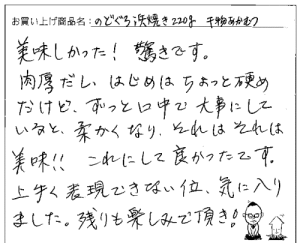 お買い上げ商品名：のどぐろ浜焼き220g 干物あかむつ
美味しかった！驚きです。
肉厚だし、はじめはちょっと硬め
だけど、ずっと口中で大事にして
いると、柔かくなり、それはそれは
美味!! これにして良かったです。
上手く表現できない位、気に入り
ました。残りも楽しみで頂き!